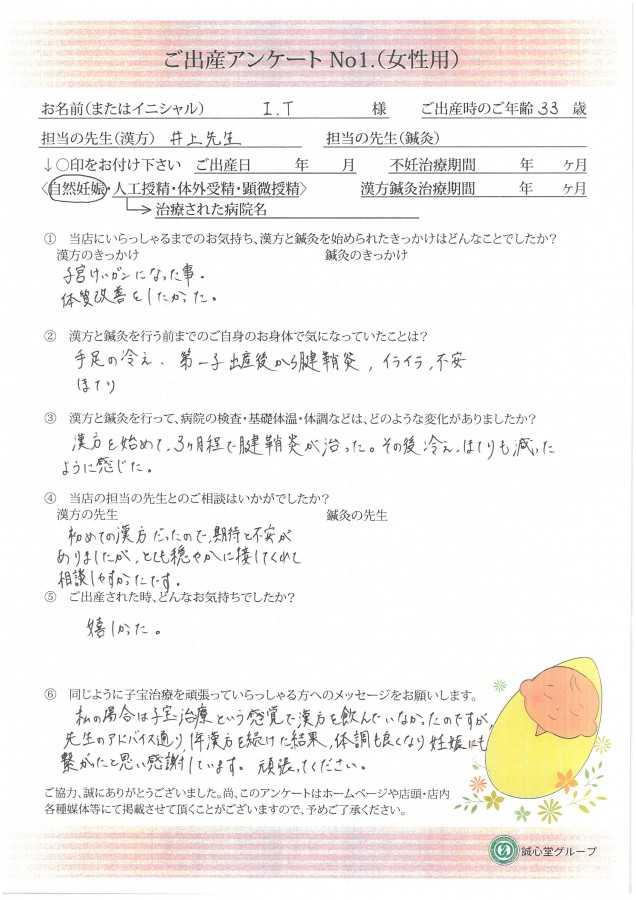 ご出産アンケート No1.(女性用)
お名前(またはイニシャル) I.T 様 ご出産時のご年齢 33 歳
担当の先生(漢方) 井上先生 担当の先生(鍼灸)
↓○印をお付け下さい ご出産日 年 月 不妊治療期間 年 ヶ月
〈自然妊娠・人工授精・体外受精・顕微授精〉 漢方鍼灸治療期間 年 ヶ月
治療された病院名
① 当店にいらっしゃるまでのお気持ち、漢方と鍼灸を始められたきっかけはどんなことでしたか?
漢方のきっかけ 鍼灸のきっかけ
子宮けいガンになった事。
体質改善をしたかった。
② 漢方と鍼灸を行う前までのご自身のお身体で気になっていたことは?
手足の冷え、第一子出産後から腱鞘炎、イライラ、不安
ほてり
③ 漢方と鍼灸を行って、病院の検査・基礎体温・体調などは、どのような変化がありましたか?
漢方を始めて、3ヶ月程で腱鞘炎が治った。その後冷え、ほてりも減った
ように感じた。
④ 当店の担当の先生とのご相談はいかがでしたか?
漢方の先生 鍼灸の先生
初めての漢方だったので、期待と不安が
ありましたが、とても穏やかに接してくれて
相談しやすかったです。
⑤ ご出産された時、どんなお気持ちでしたか?
嬉しかった。
⑥ 同じように子宝治療を頑張っていらっしゃる方へのメッセージをお願いします。
私の場合は子宝治療という感覚で漢方を飲んでいなかったのですが、
先生のアドバイス通り、1年漢方を続けた結果、体調も良くなり妊娠にも
繋がたと思い感謝しています。頑張ってください。
ご協力、誠にありがとうございました。尚、このアンケートはホームページや店頭・店内
各種媒体等にて掲載させて頂くことがございますので、予めご了承ください。
誠心堂グループ